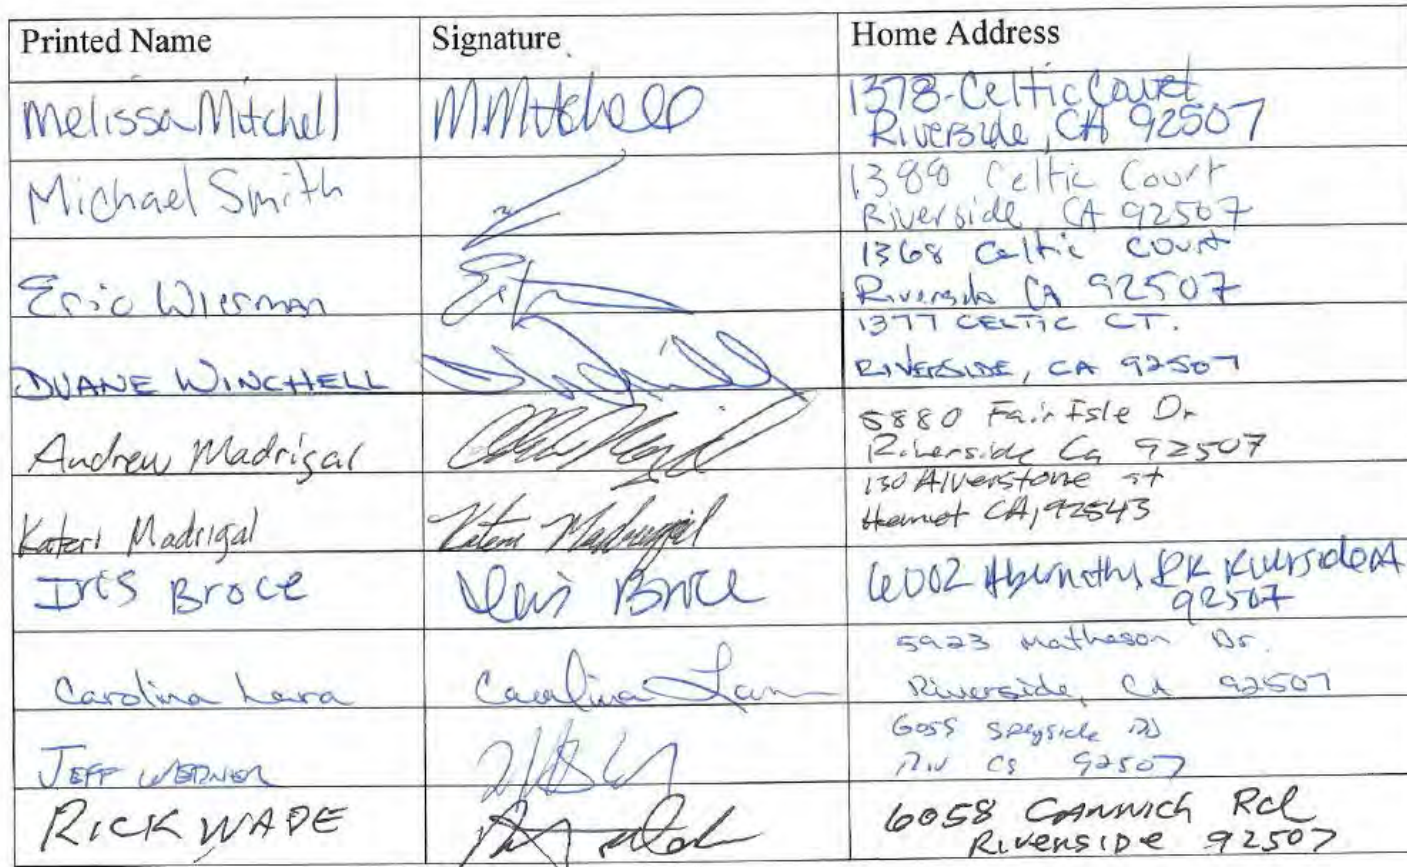 Printed Name Signature Home Address
Melissa Mitchell MMitchell 1378 Celtic Court
Riverside, CA 92507
Michael Smith 1388 Celtic Court
Riverside, CA 92507
Eric Wierman 1368 Celtic Court
Riverside CA 92507
DUANE WINCHELL 1377 CELTIC CT.
RIVERSIDE, CA 92507
Andrew Madrigal 5880 Fair Isle Dr
Riverside Ca 92507
Kateri Madrigal Kateri Madrigal 130 Alverstone st
Hemet CA, 92543
Iris Broce Iris Broce 6002 Riverside CA
92507
Carolina Lara Carolina Lara 5923 Matheson Dr.
Riverside, CA 92507
JEFF 6055 Speyside Rd
Riv Ca 92507
RICK WADE 6058 CANNICH Rd
RIVERSIDE 92507